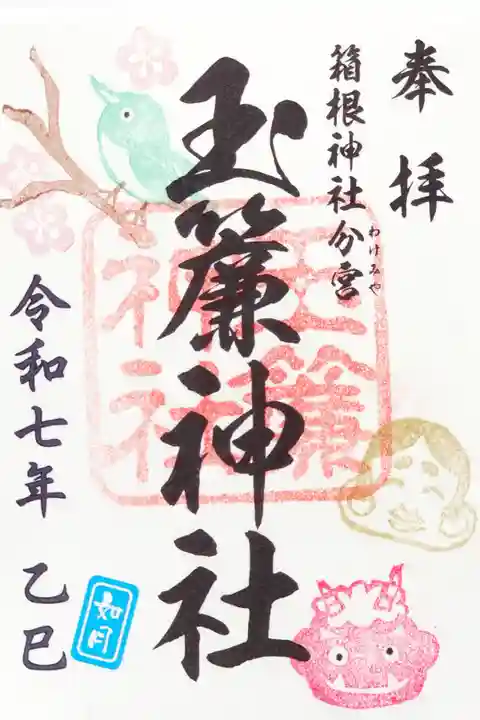 奉拝
箱根神社分宮
わけみや
玉簾神社
玉簾神社
令和七年 乙巳
如月